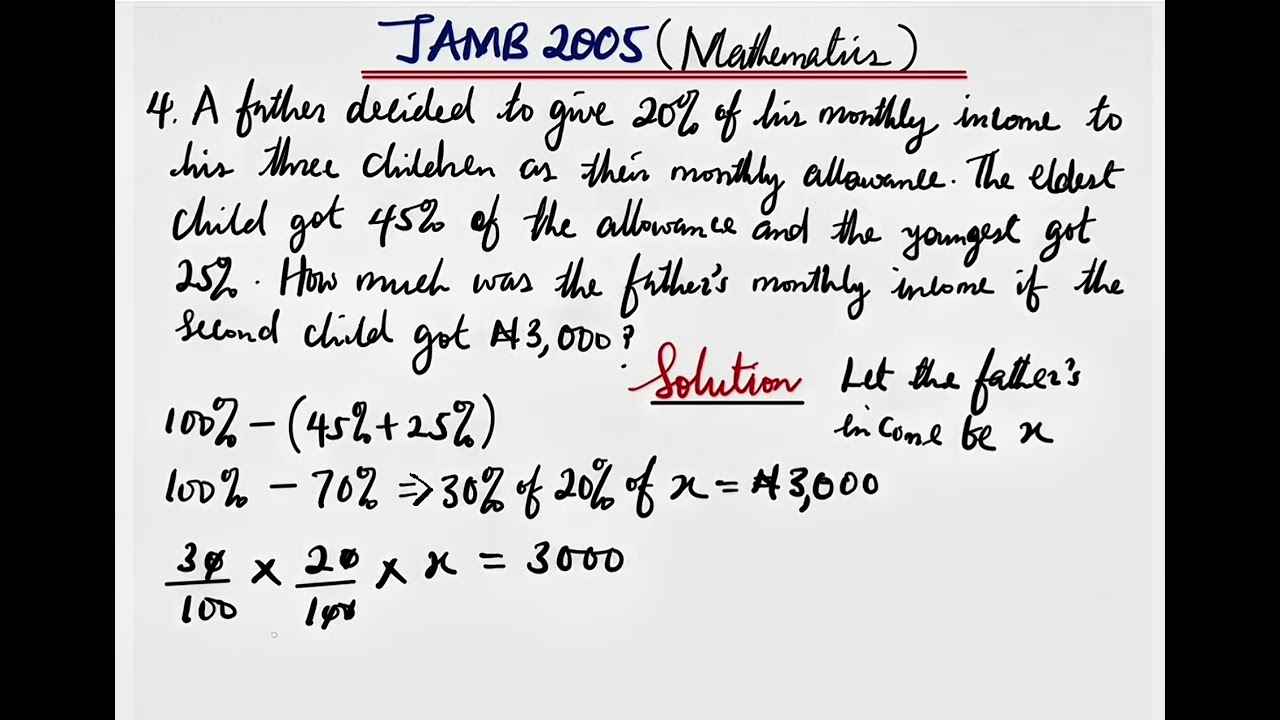 JAMB 2005 (Mathematics)
4. A father decided to give 20% of his monthly income to
his three children as their monthly allowance. The eldest
child got 45% of the allowance and the youngest got
25%. How much was the father's monthly income if the
second child got ₦3,000?
Solution
Let the father's
income be x
100% - (45% + 25%)
100% - 70% => 30% of 20% of x = ₦3,000
30/100 × 20/100 × x = 3000